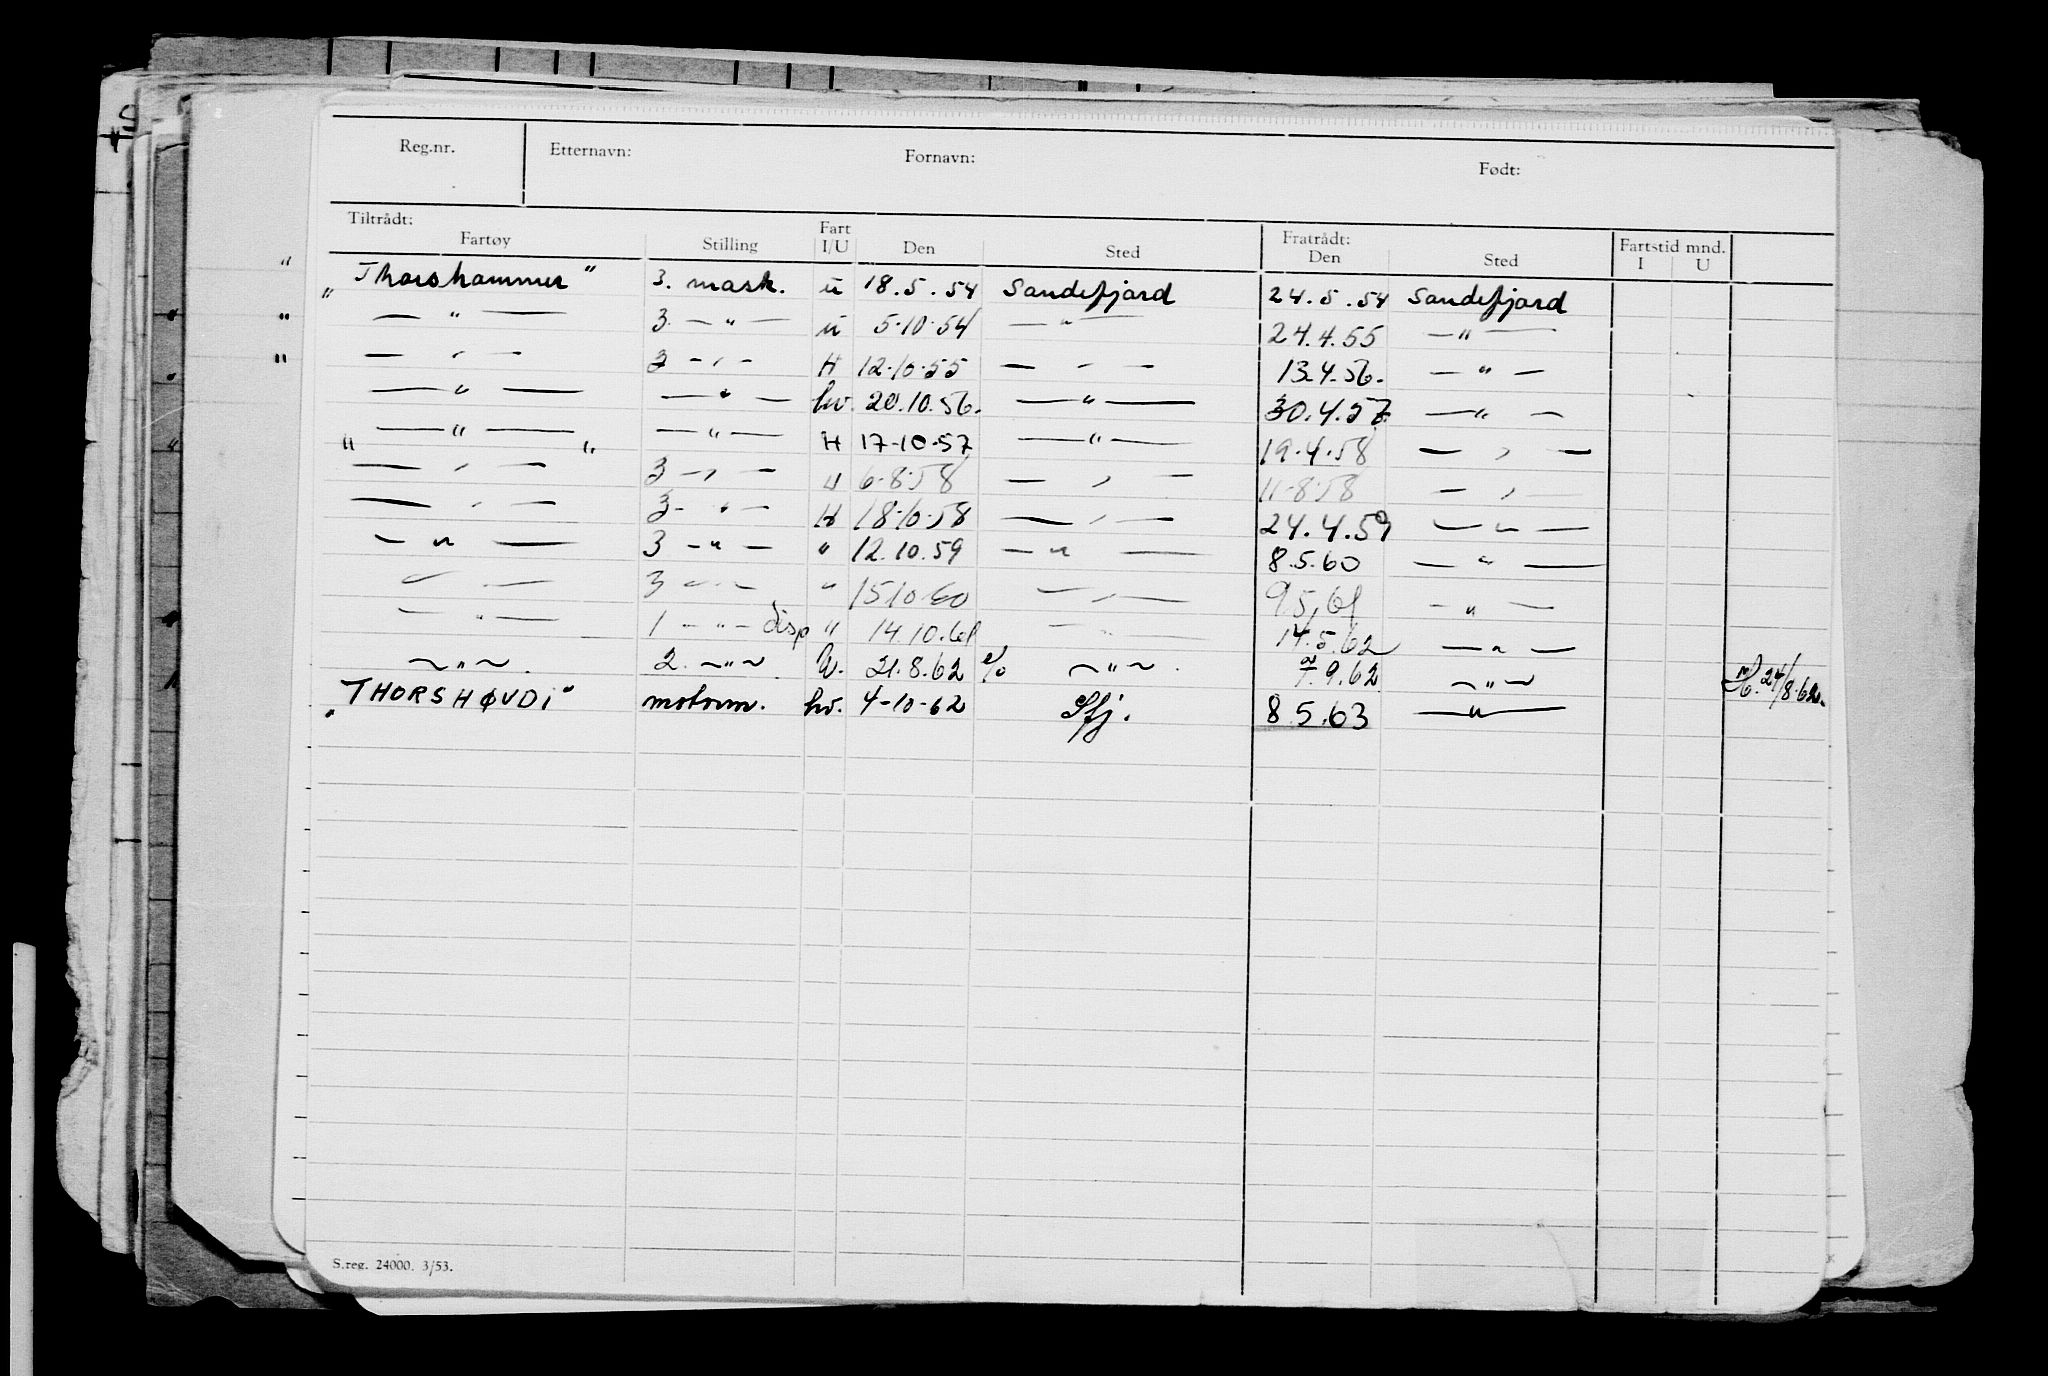 Reg.nr. Etternavn: Fornavn: Født:
Tiltrådt: Fratrådt:
Fartøy Stilling Fart I/U Den Sted Den Sted Fartstid mnd. I U
"Thorshammer" 3. mask. u 18.5.54 Sandefjord 24.5.54 Sandefjord
— " — 3 — " — u 5-10-54 — " — 24.4.55 — " —
— " — 3 — " — H 12-10-55 — " — 13.4.56. — " —
— " — — " — hv. 20.10.56. — " — 30.4.57. — " —
" — " — " — " — H 17-10-57 — " — 19.4.58 — " —
— " — 3 — " — U 6-8-58 — " — 11-8-58 — " —
— " — 3 — " — H 18-10-58 — " — 24.4.59 — " —
— " — 3 — " — " 12.10.59 — " — 8.5.60 — " —
— " — 3 — " — " 15 10-60 — " — 9 5, 61 — " —
— " — 1 — " — disp " 14.10.61 — " — 14.5.62 — " —
— " — 2. — " — 21.8.62 — " — 7.9.62 — " — 24/8.62.
"THORSHØVDI" motorm. hv. 4-10-62 Sfj. 8.5.63 — " —
S.reg. 24000. 3/53.